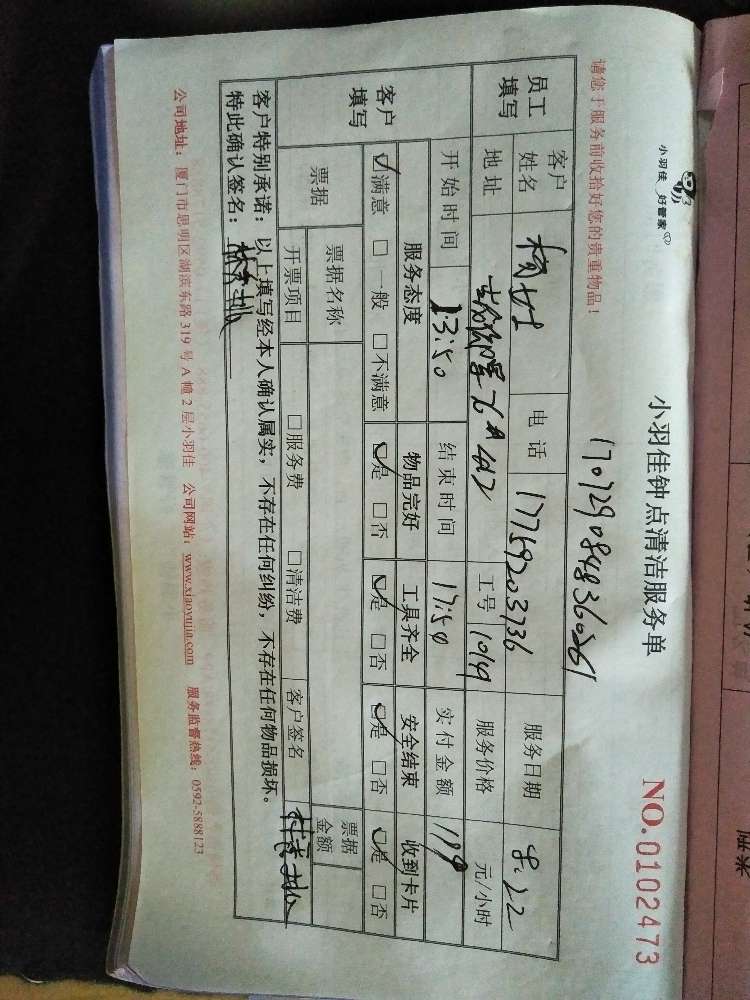 小羽佳 好管家
小羽佳钟点清洁服务单
NO.0102473
请您于服务前收拾好您的贵重物品！
员工填写 客户姓名 电话 17759203736 服务日期 8.22
地址 工号 1019 服务价格 元/小时
客户填写 开始时间 13:50 结束时间 17:50 实付金额 119
服务态度 物品完好 工具齐全 安全结束 收到卡片
☑满意 □一般 □不满意 ☑是 □否 ☑是 □否 ☑是 □否 ☑是 □否
票据 票据名称 票据金额
开票项目 □服务费 □清洁费 客户签名
客户特别承诺：以上填写经本人确认属实，不存在任何纠纷，不存在任何物品损坏。
特此确认签名：
公司地址：厦门市思明区湖滨东路 319 号 A 幢 2 层小羽佳 公司网站：www.xiaoyujia.com 服务监督热线：0592-5888123